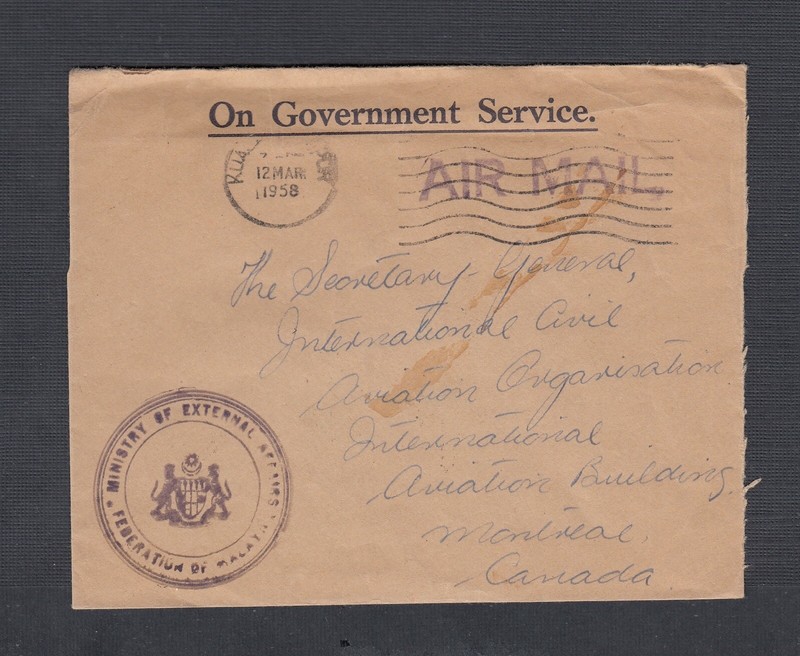 On Government Service.
12 MAR
1958
AIR MAIL
The Secretary General,
International Civil
Aviation Organisation
International
Aviation Building,
Montreal,
Canada
MINISTRY OF EXTERNAL AFFAIRS
FEDERATION OF MALAYA